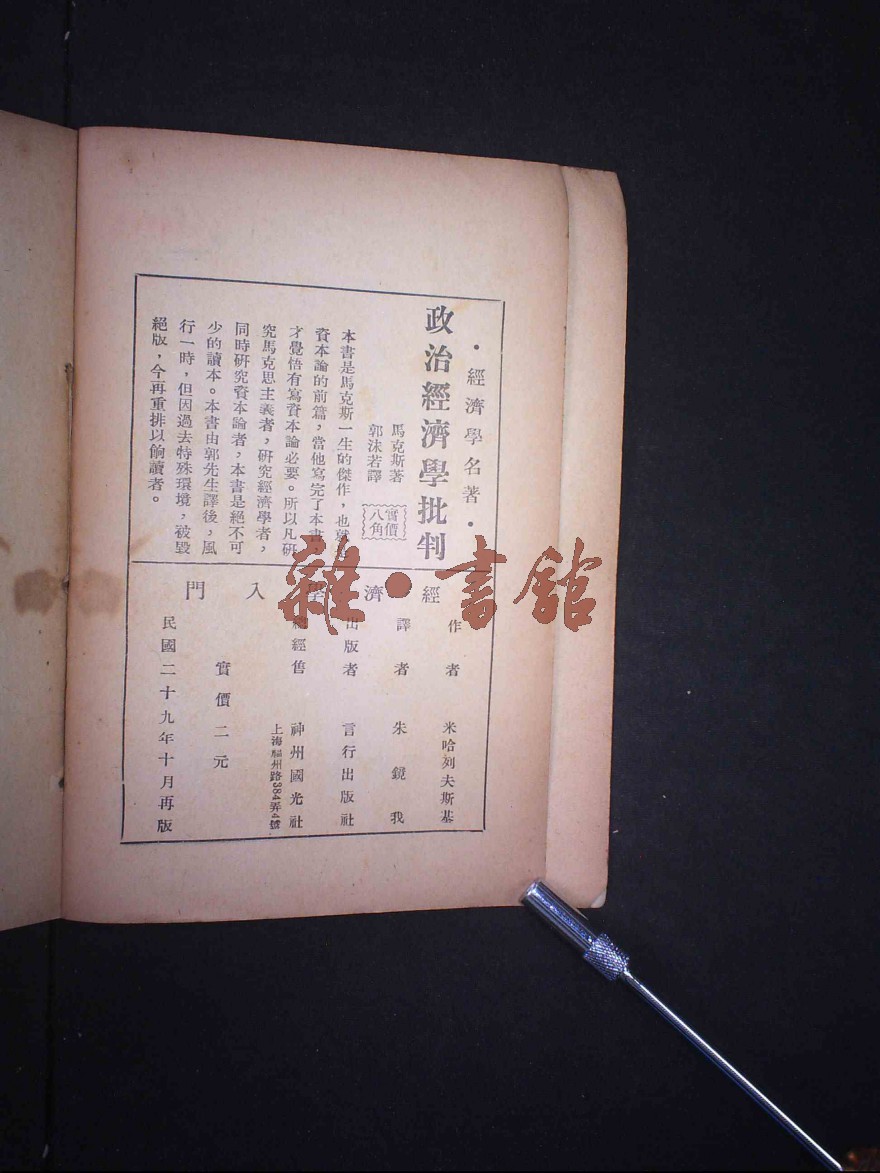 •經濟學名著•
政治經濟學批判
馬克斯著
郭沫若譯
實價
八角
本書是馬克斯一生的傑作，也就是
資本論的前篇，當他寫完了本書
才覺悟有寫資本論必要。所以凡研
究馬克思主義者，研究經濟學者，
同時研究資本論者，本書是絕不可
少的讀本。本書由郭先生譯後，風
行一時，但因過去特殊環境，被毀
絕版，今再重排以餉讀者。
經濟學入門
作者 米哈列夫斯基
譯者 朱鏡我
出版者 言行出版社
總經售 神州國光社
上海福州路384弄4號
實價二元
民國二十九年十月再版
雜•書館